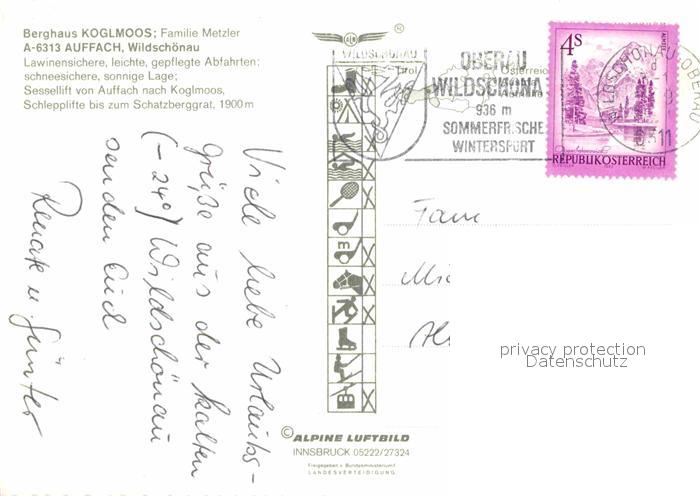 Berghaus KOGLMOOS; Familie Metzler
A-6313 AUFFACH, Wildschönau
Lawinensichere, leichte, gepflegte Abfahrten;
schneesichere, sonnige Lage;
Sessellift von Auffach nach Koglmoos,
Schlepplifte bis zum Schatzberggrat, 1900 m
Viele liebe Urlaubs-
grüße aus der kalten
(-24°) Wildschönau
senden Euch
Renate u. Günter
WILDSCHÖNAU
Tirol
OBERAU
WILDSCHÖNAU
936 m
SOMMERFRISCHE
WINTERSPORT
Österreich
4S
ALMSEE
REPUBLIK ÖSTERREICH
WILDSCHÖNAU-OBERAU
6311
Fam
Mi
Al
privacy protection
Datenschutz
© ALPINE LUFTBILD
INNSBRUCK 05222/27324
Freigegeben v. Bundesministerium f.
LANDESVERTEIDIGUNG